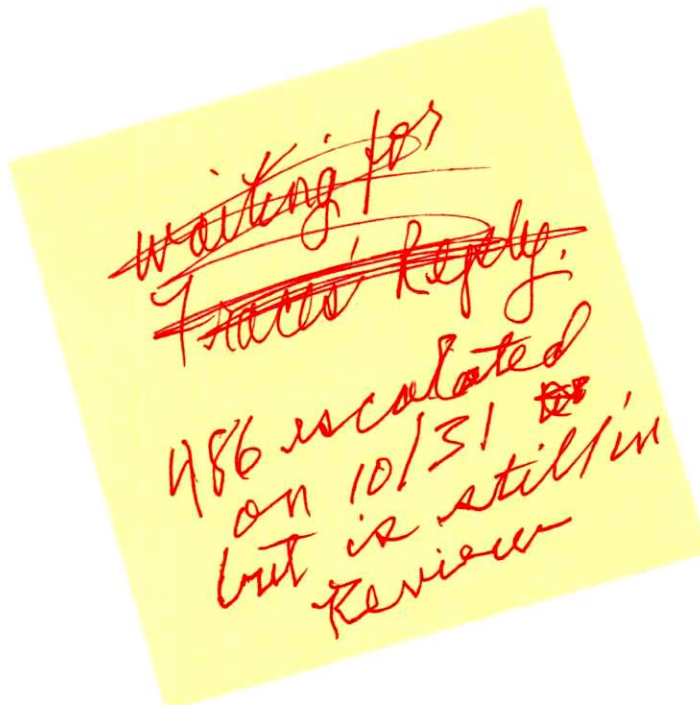 waiting for
Traces' Reply.
486 escalated
on 10/31
but is still in
Review